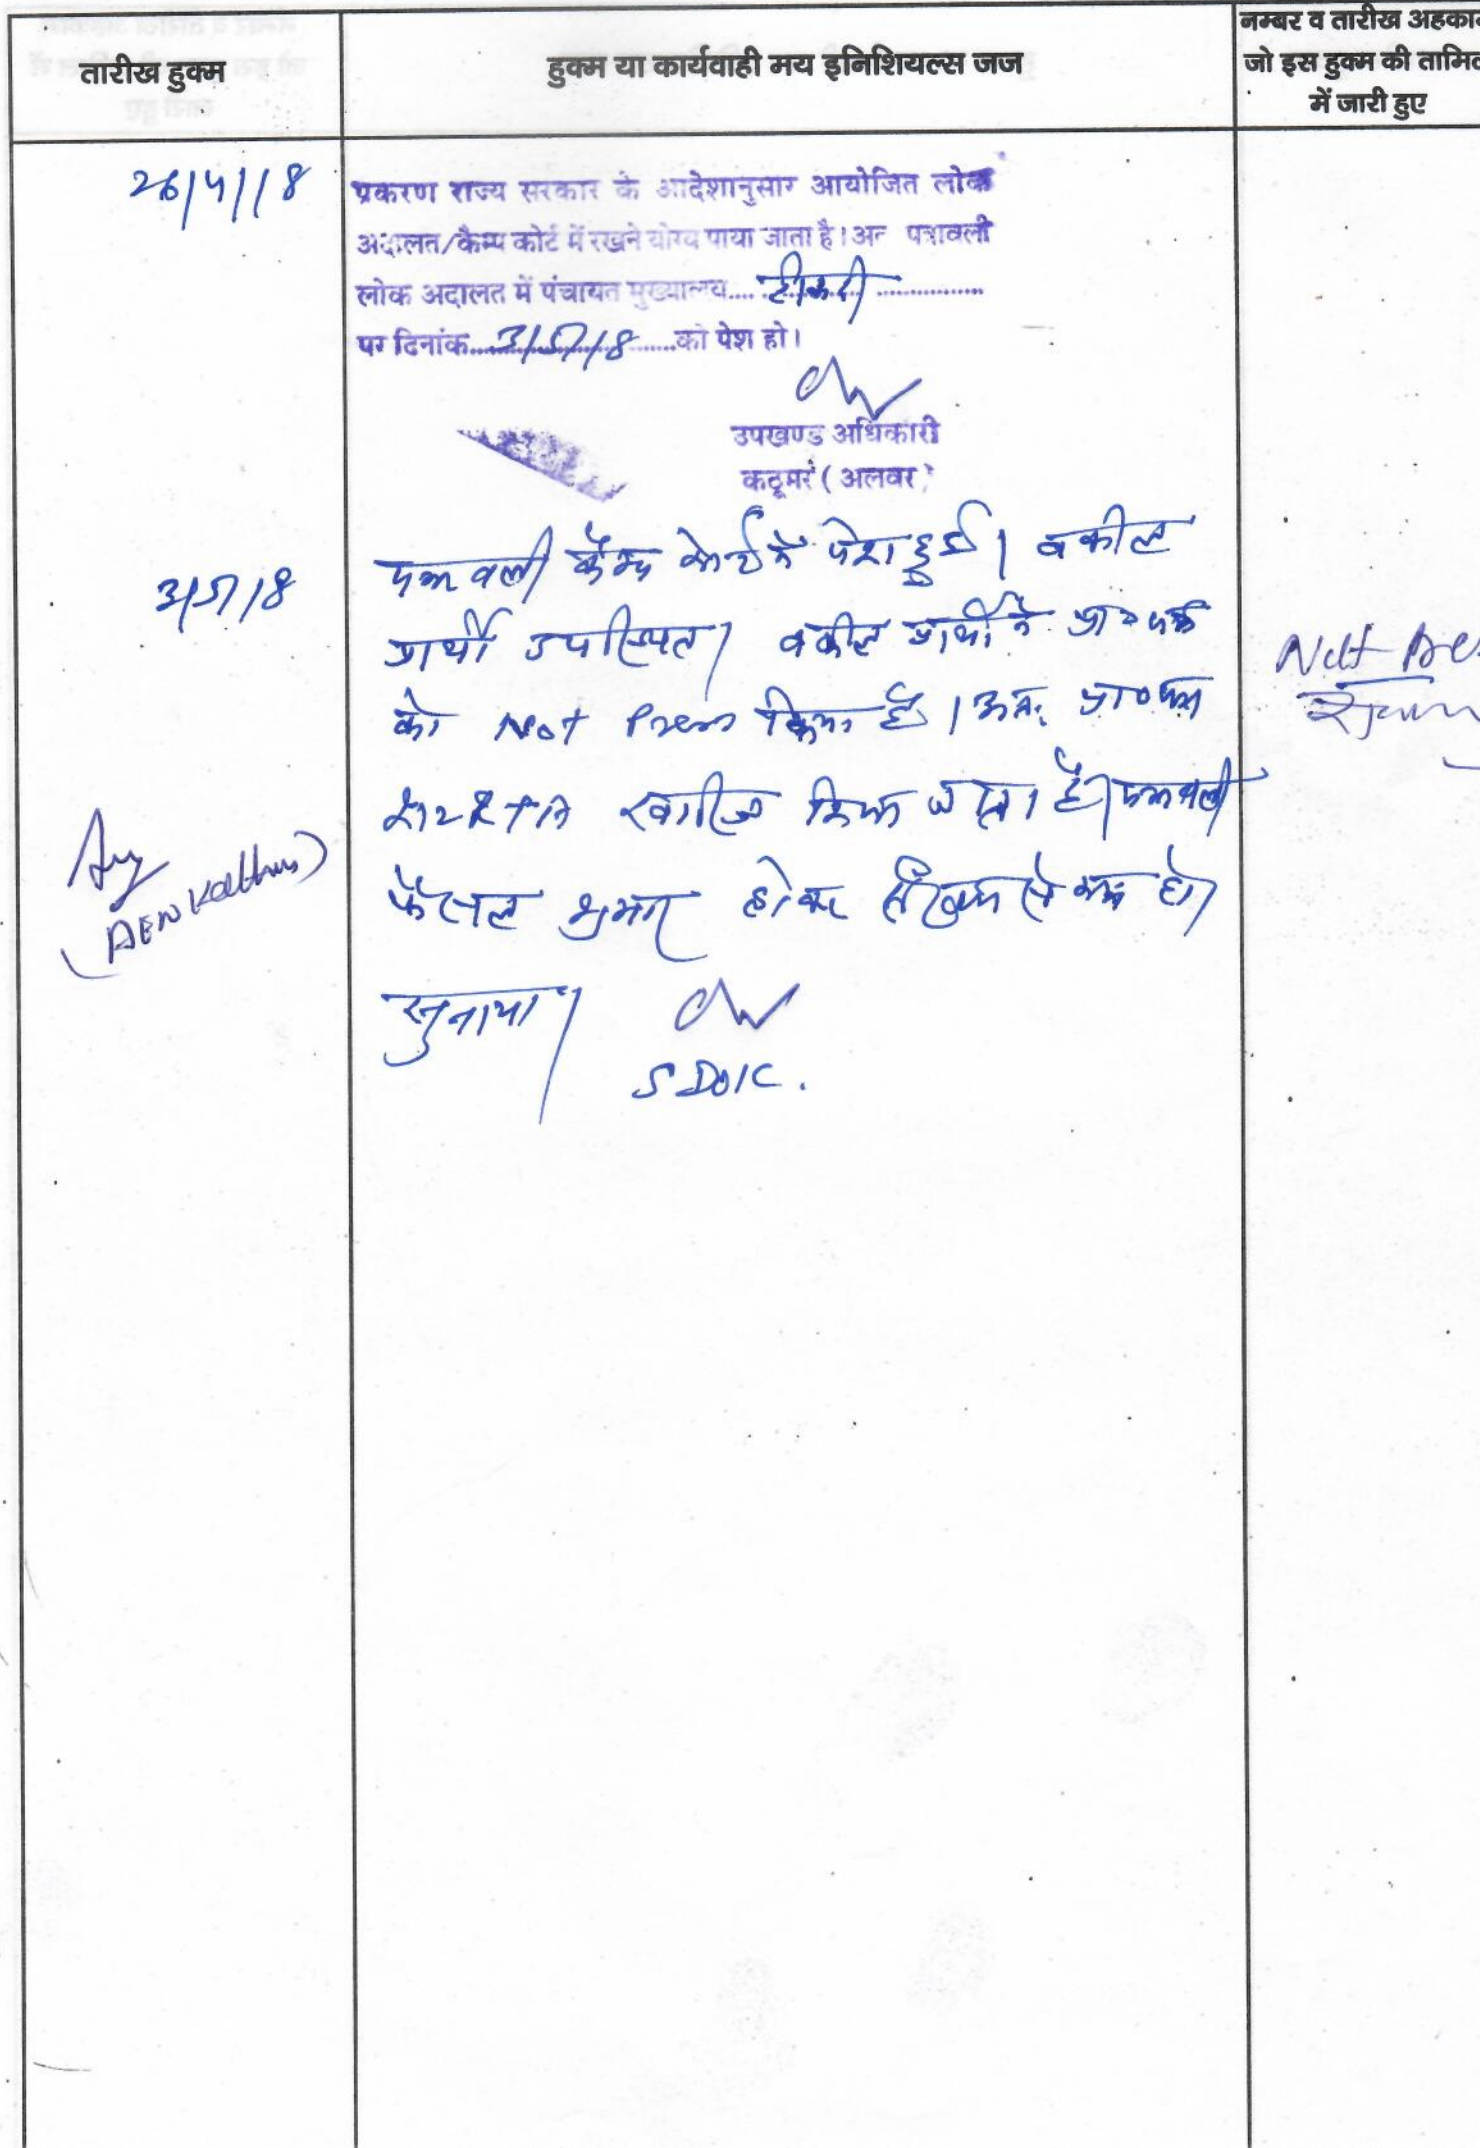 तारीख हुक्म
हुक्म या कार्यवाही मय इनिशियल्स जज
नम्बर व तारीख अहकाम
जो इस हुक्म की तामिल
में जारी हुए
26/4/18
प्रकरण राज्य सरकार के आदेशानुसार आयोजित लोक
अदालत/कैम्प कोर्ट में रखने योग्य पाया जाता है। अतः पत्रावली
लोक अदालत में पंचायत मुख्यालय....
पर दिनांक....3/5/18....को पेश हो।
उपखण्ड अधिकारी
कठूमर (अलवर)
3/5/18
पत्रावली कैम्प कोर्ट में पेश हुई। वकील
प्रार्थी उपस्थित। वकील प्रार्थी ने प्रा० पत्र
को Not Press किया है। अतः प्रा० पत्र
खारिज किया जाता है। पत्रावली
फैसल शुमार होकर हो।
सुनाया।
SDO K.
Not Pre
AEN Kathu